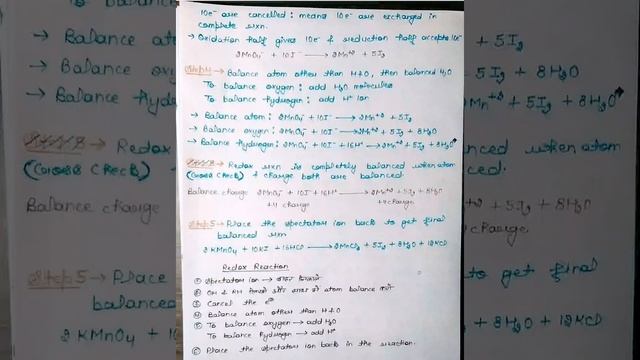 10e⁻ are cancelled: means 10e⁻ are exchanged in
complete rxn.
→ Oxidation half gives 10e⁻ & reduction half accepts 10e⁻
2MnO₄⁻ + 10I⁻ → 2Mn⁺² + 5I₂
Step 4 → Balance atom other than H & O, then balanced H₂O
To balance oxygen: add H₂O molecules
To balance hydrogen: add H⁺ ion
→ Balance atom: 2MnO₄⁻ + 10I⁻ → 2Mn⁺² + 5I₂
→ Balance oxygen: 2MnO₄⁻ + 10I⁻ → 2Mn⁺² + 5I₂ + 8H₂O
→ Balance Hydrogen: 2MnO₄⁻ + 10I⁻ + 16H⁺ → 2Mn⁺² + 5I₂ + 8H₂O
→ Redox rxn is completely balanced when atom
(Cross Check) & charge both are balanced.
Balance charge 2MnO₄⁻ + 10I⁻ + 16H⁺ → 2Mn⁺² + 5I₂ + 8H₂O
+4 charge +4 charge
Step 5 → Place the spectator ion back to get final
balanced rxn
2 KMnO₄ + 10KI + 16HCl → 2MnCl₂ + 5I₂ + 8H₂O + 12KCl
Redox Reaction
① Spectator ion →
② OH & RH atom balance
③ Cancel the e⁻
④ Balance atom other than H & O
⑤ To balance oxygen → add H₂O
To balance hydrogen → add H⁺
⑥ Place the spectator ion back in the reaction.